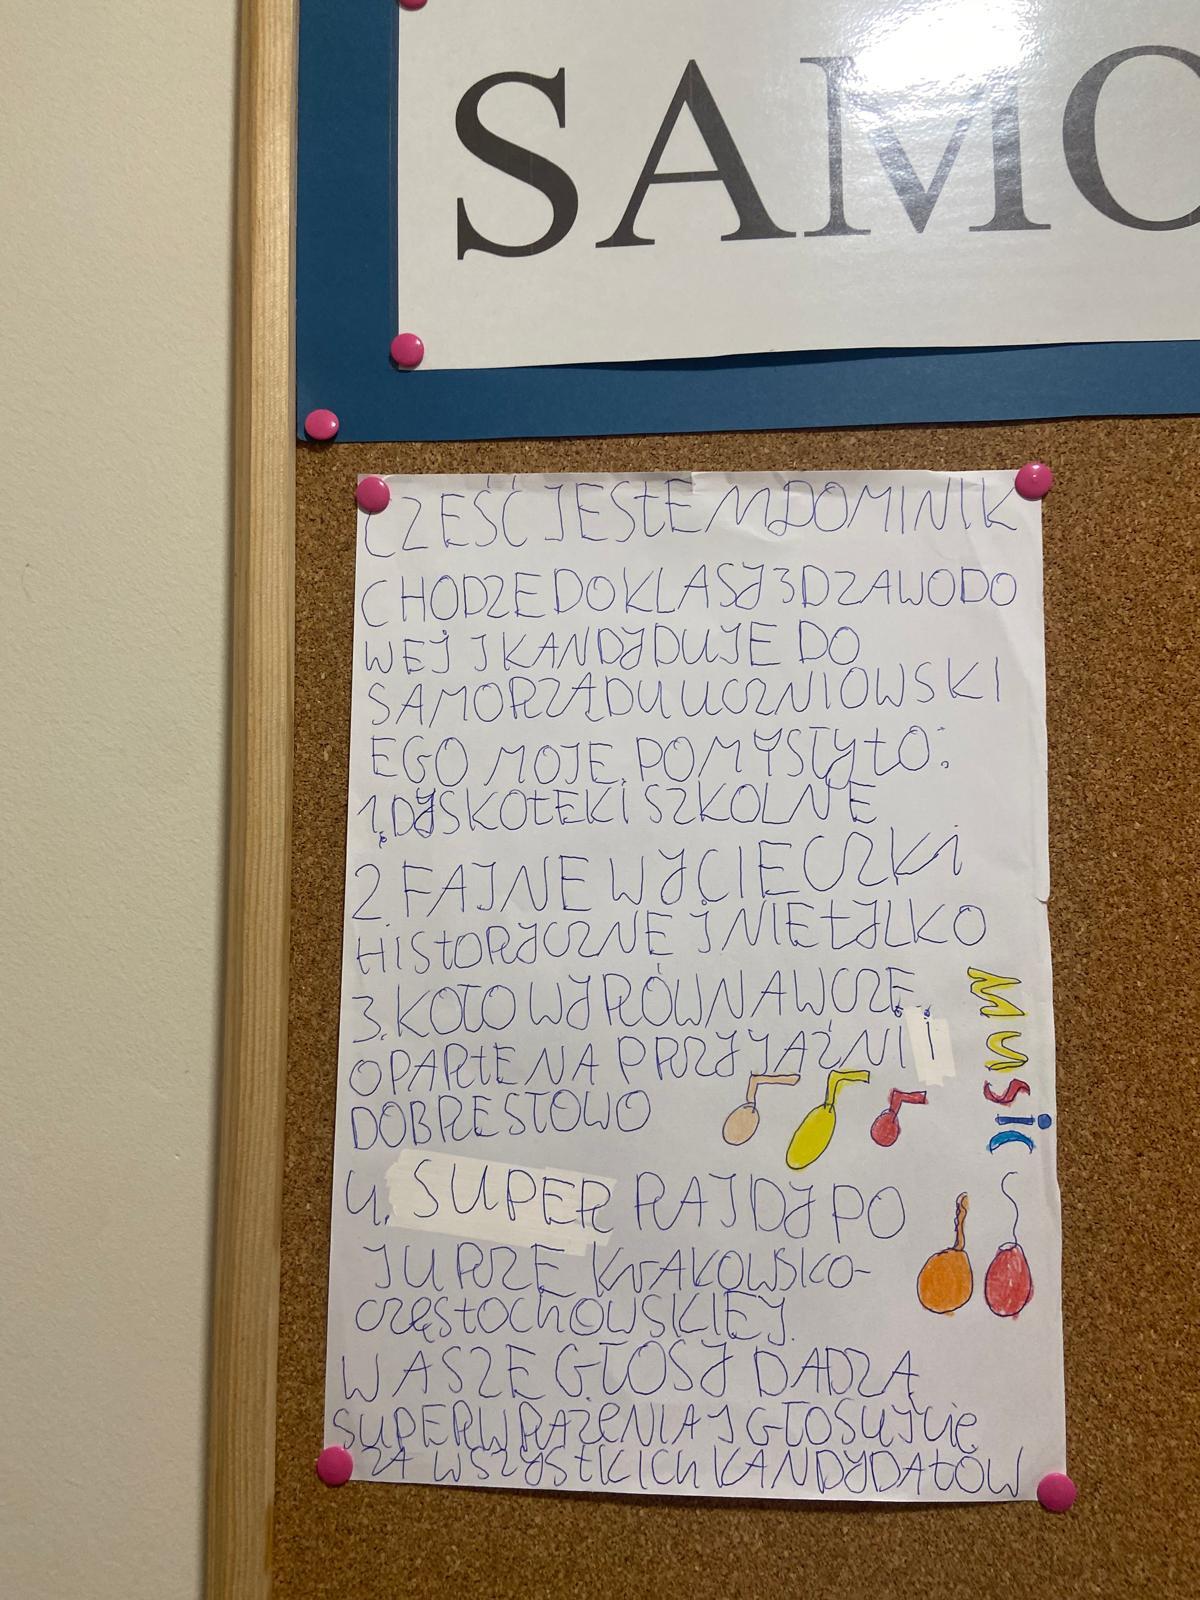 SAMO
CZEŚĆ JESTEM DOMINIK
CHODZE DO KLASY 3D ZAWODO
WEJ I KANDYDUJE DO
SAMORZĄDU UCZNIOWSKI
EGO MOJE POMYSŁY TO:
1. DYSKOTEKI SZKOLNE
2. FAJNE WYCIECZKI
HISTORYCZNE I NIE TYLKO
3. KOŁO WYRÓWNAWCZE
OPARTE NA PRZYJAŹNI I
DOBRE SŁOWO
MUSIC
4. SUPER RAJDY PO
JURZE KRAKOWSKO-
CZĘSTOCHOWSKIEJ.
WASZE GŁOSY DADZĄ
SUPER WRAŻENIA I GŁOSUJCIE
ZA WSZYSTKICH KANDYDATÓW